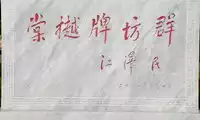 棠樾牌坊群
江泽民